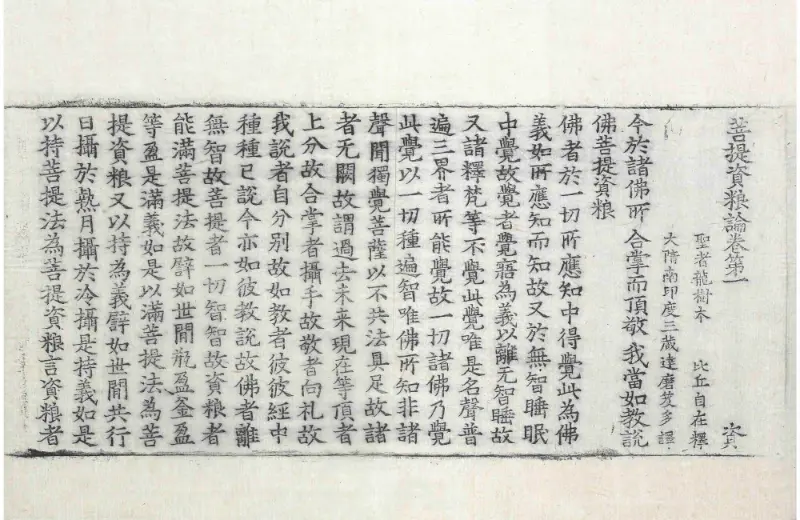 菩提資粮論卷第一 資
聖者龍樹本 比丘自在釋
大隋南印度三藏達磨笈多譯
今於諸佛所 合掌而頂敬 我當如教說
佛菩提資粮
佛者於一切所應知中得覺此為佛
義如所應知而知故又於無智睡眠
中覺故覺者覺寤為義以離无智睡故
又諸釋梵等不覺此覺唯是名聲普
遍三界者所能覺故一切諸佛乃覺
此覺以一切種遍智唯佛所知非諸
聲聞獨覺菩薩以不共法具足故諸
者无闕故謂過去未来現在等頂者
上分故合掌者攝手故敬者向礼故
我說者自分別故如教者彼彼經中
種種已說今亦如彼教說故佛者離
無智故菩提者一切智智故資粮者
能滿菩提法故譬如世間瓶盈釜盈
等盈是滿義如是以滿菩提法為菩
提資粮又以持為義譬如世間共行
日攝於熱月攝於冷攝是持義如是
以持菩提法為菩提資粮言資粮者